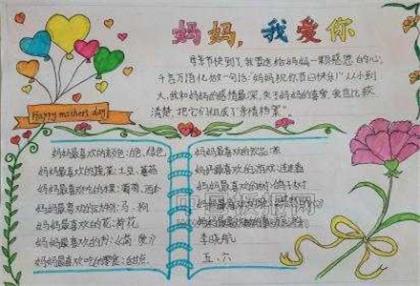 妈妈,我爱你
母亲节快到了,我要送给妈妈一颗感恩的心,
千言万语化做一句话:"妈妈祝你节日快乐!"从小到
大,我和妈妈的感情最深,关于妈妈的喜爱,我也比较
清楚,把它们组成了"亲情档案"
Happy mother's day
妈妈最喜欢的颜色:白色、绿色
妈妈最喜欢的蔬菜:土豆、蕃茄
妈妈最喜欢吃的水果:葡萄、西
妈妈最喜欢的动物:马、狗
妈妈最喜欢的花:荷花
妈妈最喜欢的
妈妈最喜欢吃的零食:
妈妈最喜欢的饮品:茶
妈妈最喜欢的游戏:连连看
妈妈最喜欢的树:鸽子树
妈妈最喜欢
妈妈最喜欢
李晓航
五、六